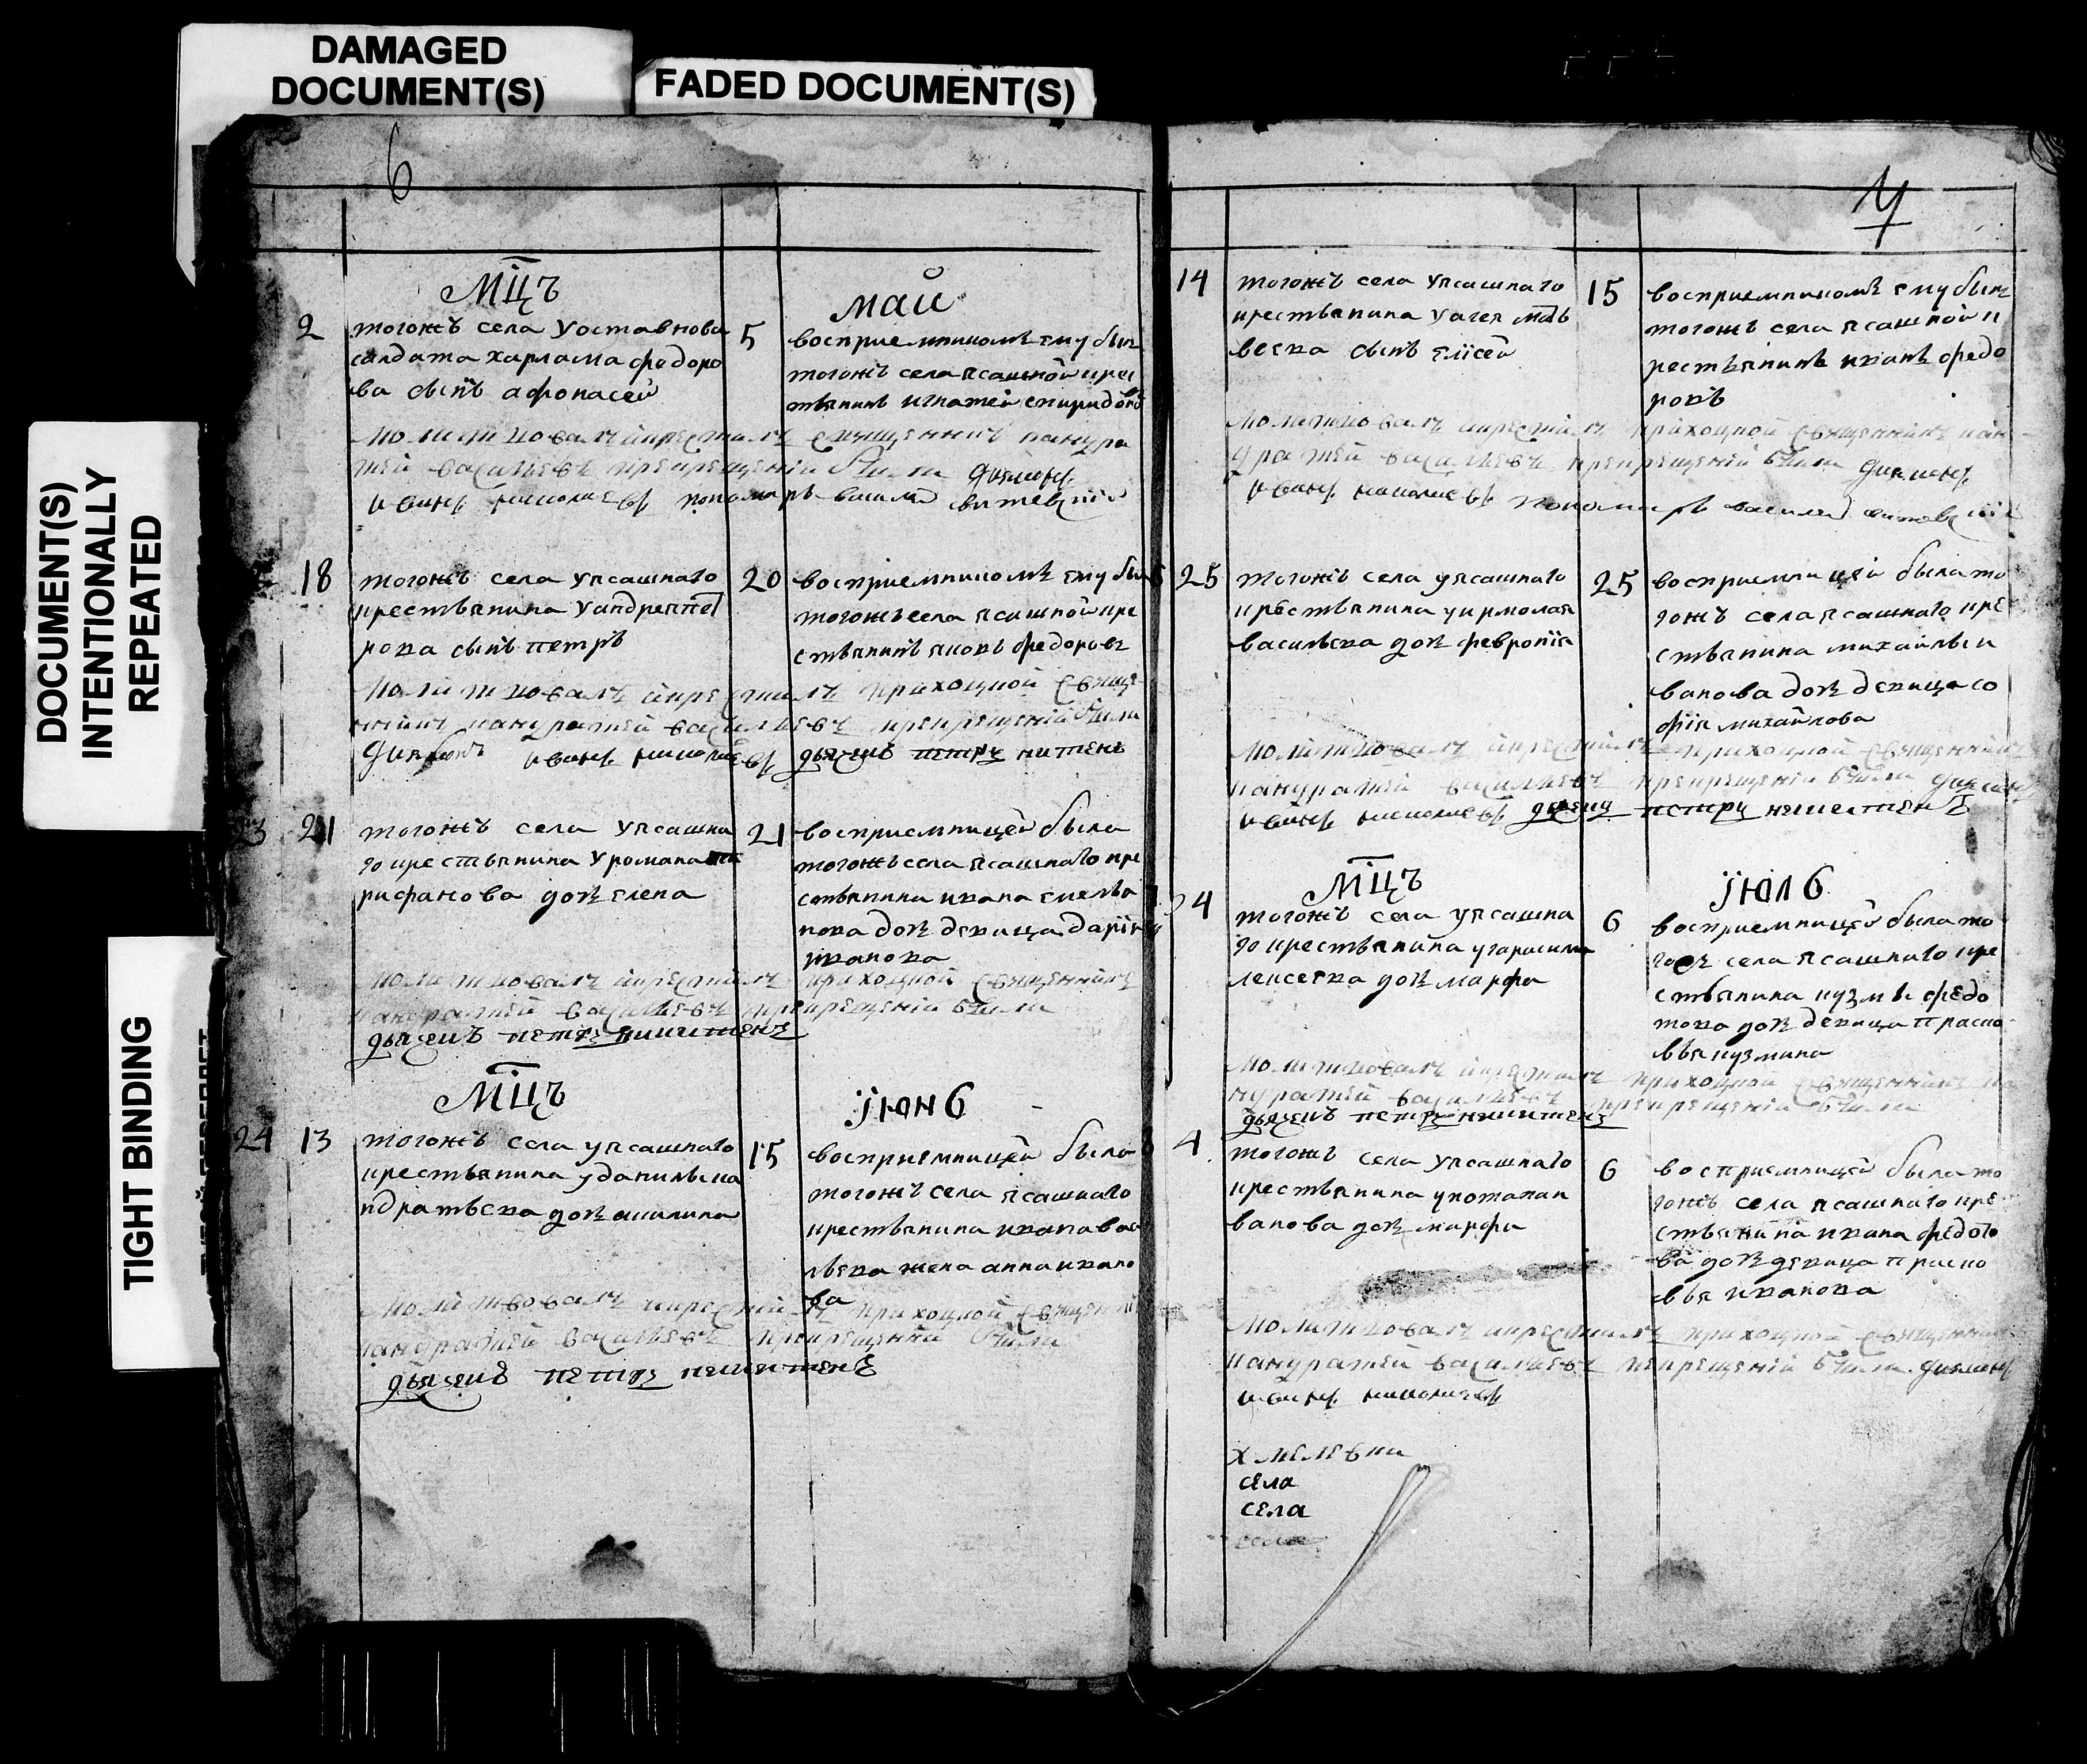 DAMAGED
DOCUMENT(S)
FADED DOCUMENT(S)
DOCUMENT(S)
INTENTIONALLY
REPEATED
TIGHT BINDING
6
МЦЪ
май
2
тогожъ села уоставнова
салдата харлама федоро
ва сынъ афонасей
5
восприемникомъ ему былъ
тогожъ села ясашной крес
тьянинъ игнатей спиридоно
молитвовалъ икрестилъ священникъ панкра
тей васильевъ прикрещении были диаконъ
иванъ николаевъ пономарь василей витевский
18
тогожъ села уясашнаго
крестьянина уандрея пет
рова сынъ петръ
20
восприемникомъ ему был
тогожъ села ясашной кре
стьянинъ яковъ федоровъ
молитвовалъ икрестилъ приходской свяще
нникъ панкратей васильевъ прикрещении были
диаконъ иванъ николаевъ дьячекъ петръ никитенъ
23
21
тогожъ села уясашна
го крестьянина уромана
рифанова дочь елена
21
восприемницей была
тогожъ села ясашнаго кре
стьянина ивана емелья
нова дочь девица дарія
иванова
молитвовалъ икрестилъ приходской священникъ
панкратей васильевъ прикрещении были
дьячекъ петръ никитенъ
МЦЪ
їюнь
24
13
тогожъ села уясашнаго
крестьянина уданилы ко
ндратьева дочь акилина
15
восприемницей была
тогожъ села ясашнаго
крестьянина ивана васи
льева жена анна ивано
ва
молитвовалъ икрестилъ приходской священни
панкратей васильевъ прикрещении были
дьячекъ петръ никитенъ
7
14
тогожъ села уясашнаго
крестьянина уагея мат
веева сынъ елисей
15
восприемникомъ ему былъ
тогожъ села ясашной к
рестьянинъ иванъ федо
ровъ
молитвовалъ икрестилъ приходской священникъ пан
кратей васильевъ прикрещении были диаконъ
иванъ николаевъ пономарь василей витевский
25
тогожъ села уясашнаго
крестьянина уирмолая
васильева дочь феврония
25
восприемницей была то
гожъ села ясашнаго кре
стьянина михайлы и
ванова дочь девица со
фия михайлова
молитвовалъ икрестилъ приходской священникъ
панкратей васильевъ прикрещении были диаконъ
иванъ николаевъ дьячекъ петръ никитенъ
МЦЪ
їюль
4
тогожъ села уясашна
го крестьянина угарасима
лексеева дочь марфа
6
восприемницей была то
гожъ села ясашнаго кре
стьянина кузмы федо
това дочь девица праско
вья кузмина
молитвовалъ икрестилъ приходской священникъ па
нкратей васильевъ прикрещении были
дьячекъ петръ никитенъ
4
тогожъ села уясашнаго
крестьянина употапа и
ванова дочь марфа
6
восприемницей была то
гожъ села ясашнаго кре
стьянина ивана федото
ва дочь девица праско
вья иванова
молитвовалъ икрестилъ приходской священни
панкратей васильевъ прикрещении были диаконъ
иванъ николаевъ
хмелевки
села
села
села